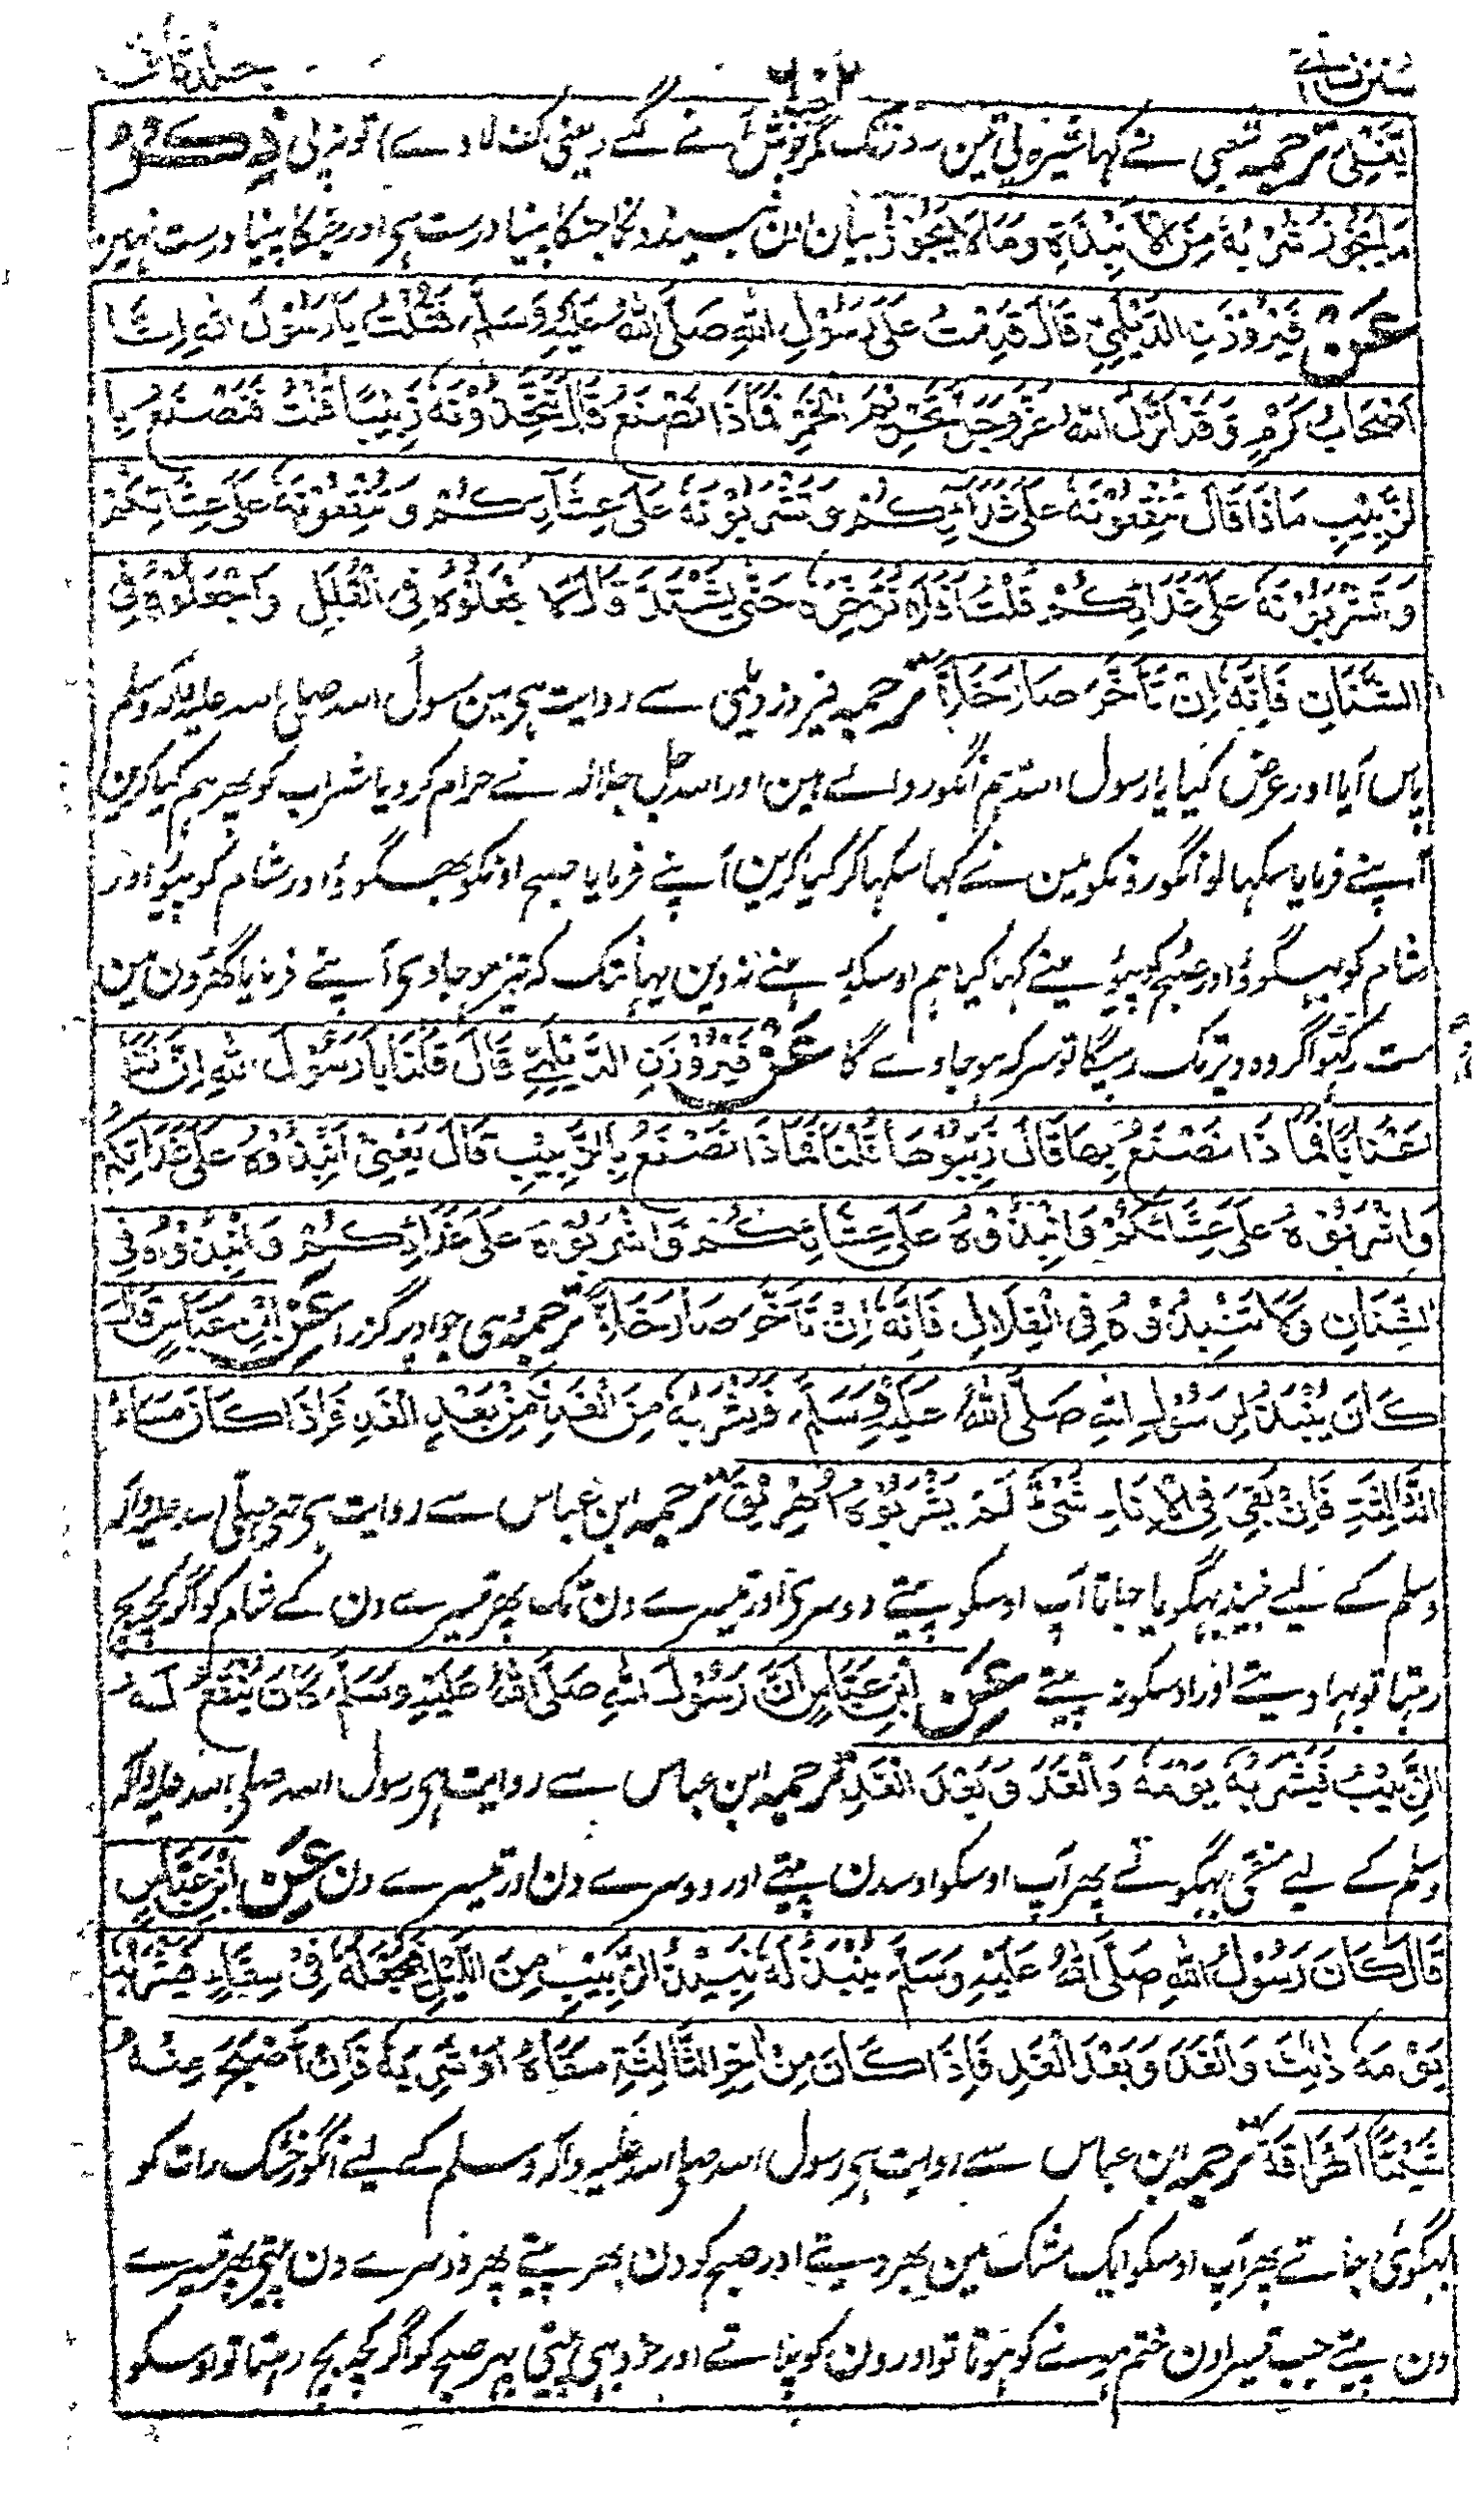 سنن نسائی ٦٠٢ جلد ثالث
يَغْلِيَ ترجمہ شعبی نے کہا شیرہ پی تین روز تک مگر جوش آنے لگے (یعنی کف لاوے) تو نہ پی ذِكْرُ
مَا يَجُوزُ شُرْبُهُ مِنَ الْأَنْبِذَةِ وَمَا لَا يَجُوزُ بیان ان نبیذونکا جنکا پینا درست ہی اور جنکا پینا درست نہین
عَنْ فَيْرُوْزَنِ الدَّيْلَمِيِّ قَالَ قَدِمْتُ عَلَى رَسُوْلِ اللهِ صَلَّى اللهُ عَلَيْهِ وَسَلَّمَ فَقُلْتُ يَا رَسُوْلَ اللهِ اِنَّا
اَصْحَابُ كَرْمٍ وَقَدْ اَنْزَلَ اللهُ عَزَّوَجَلَّ تَحْرِيْمَ الْخَمْرِ فَمَاذَا نَصْنَعُ قَالَ تَتَّخِذُوْنَهُ زَبِيْبًا قُلْتُ فَنَصْنَعُ بِا
لزَّبِيْبِ مَاذَا قَالَ تُنْقِعُوْنَهُ عَلَى غَدَآئِكُمْ وَتَشْرَبُوْنَهُ عَلَى عَشَآئِكُمْ وَتُنْقِعُوْنَهُ عَلَى عَشَائِكُمْ
وَتَشْرَبُوْنَهُ عَلَى غَدَائِكُمْ قُلْتُ اَفَلَا نُؤَخِّرُهُ حَتَّى يَشْتَدَّ قَالَ لَا تَجْعَلُوْهُ فِى الْقُلَلِ وَاجْعَلُوْهُ فِى
الشِّنَانِ فَاِنَّهُ اِنْ تَأَخَّرَ صَارَ خَلًّا ترجمہ فیروز دیلمی سے روایت ہی مین رسول اللہ صلی اللہ علیہ وآلہ وسلم
پاس آیا اور عرض کیا یا رسول اللہ ہم انگور والے ہین اور اللہ جل جلالہ نے حرام کر دیا شراب کو پھر ہم کیا کرین
آپنے فرمایا سکہا لو انگورونکو مین نے کہا سکہا کر کیا کرین آپنے فرمایا صبح اونکو بھگوؤ اور شام کو پیو اور
شام کو بہگوؤ اور صبح کو پیؤ مینے کہا کیا ہم اوسکو رہنے نہ دین یہانتک کہ تیز ہو جاوی آپنے فرمایا گھڑون مین
مت رکہو اگر وہ دیر تک رہیگا تو سرکہ ہو جاوے گا عَنْ فَيْرُوْزَنِ الدَّيْلَمِيِّ قَالَ قُلْنَا يَا رَسُوْلَ اللهِ اِنَّ لَنَا
اَعْنَابًا فَمَاذَا نَصْنَعُ بِهَا قَالَ زَبِّبُوْهَا قُلْنَا فَمَاذَا نَصْنَعُ بِالزَّبِيْبِ قَالَ يَعْنِى اَنْبِذُوْهُ عَلَى غَدَائِكُمْ
وَاشْرَبُوْهُ عَلَى عَشَائِكُمْ وَانْبِذُوْهُ عَلَى عَشَائِكُمْ وَاشْرَبُوْهُ عَلَى غَدَائِكُمْ وَانْبِذُوْهُ فِى
الشِّنَانِ وَلَا تَنْبِذُوْهُ فِى الْقِلَالِ فَاِنَّهُ اِنْ تَأَخَّرَ صَارَ خَلًّا ترجمہ وہی جو اوپر گزرا عَنِ ابْنِ عَبَّاسٍ قَالَ
كَانَ يُنْبَذُ لِرَسُوْلِ اللهِ صَلَّى اللهُ عَلَيْهِ وَسَلَّمَ فَيَشْرَبُهُ مِنَ الْغَدِ وَمِنْ بَعْدِ الْغَدِ فَاِذَا كَانَ مَسَاءُ
الثَّالِثَةِ فَاِنْ بَقِىَ فِى الْاِنَاءِ شَىْءٌ لَمْ يَشْرَبُوْهُ اُهْرِيْقَ ترجمہ ابن عباس سے روایت ہی نبی صلی اللہ علیہ وآلہ
وسلم کے لیے نبیذ بہگویا جاتا آپ اوسکو پیتے دوسری اور تیسرے دن تک پھر تیسرے دن کے شام کو اگر کچھ بچ
رہتا تو بہا دیتے اور اوسکو نہ پیتے عَنِ ابْنِ عَبَّاسٍ اَنَّ رَسُوْلَ اللهِ صَلَّى اللهُ عَلَيْهِ وَسَلَّمَ كَانَ يُنْقَعُ لَهُ
الزَّبِيْبُ فَيَشْرَبُهُ يَوْمَهُ وَالْغَدَ وَبَعْدَ الْغَدِ ترجمہ ابن عباس سے روایت ہی رسول اللہ صلی اللہ علیہ وآلہ
وسلم کے لیے منقی بہگوتے پھر آپ اوسکو اوسدن پیتے اور دوسرے دن اور تیسرے دن عَنِ ابْنِ عَبَّاسٍ
قَالَ كَانَ رَسُوْلُ اللهِ صَلَّى اللهُ عَلَيْهِ وَسَلَّمَ يُنْبَذُ لَهُ نَبِيْذُ الزَّبِيْبِ مِنَ اللَّيْلِ فَيَجْعَلُهُ فِى سِقَاءٍ فَيَشْرَبُهُ
يَوْمَهُ ذٰلِكَ وَالْغَدَ وَبَعْدَ الْغَدِ فَاِذَا كَانَ مِنْ اٰخِرِ الثَّالِثَةِ سَقَاهُ اَوْ شَرِبَهُ فَاِنْ اَصْبَحَ مِنْهُ
شَيْئًا اَهْرَاقَهُ ترجمہ ابن عباس سے روایت ہی رسول اللہ صلی اللہ علیہ وآلہ وسلم کے لیے انگور خشک رات کو
بہگوئی جاتے پھر آپ اوسکو ایک مشک مین بھر دیتے اور صبح کو دن بھر پیتے پھر دوسرے دن پیتے پھر تیسرے
دن پیتے جب تیسرا دن ختم ہونے کو ہوتا تو اورون کو پلاتے اور خود بہی پیتے پہر صبح کو اگر کچھ بچ رہتا تو اوسکو